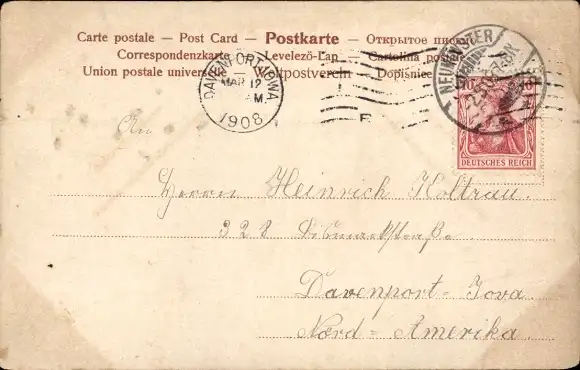 Carte postale — Post Card — Postkarte — Открытое письмо
Correspondenzkarte — Levelező-Lap — Cartolina postale
Union postale universelle Weltpostverein — Dopisnice
DAVENPORT, IOWA
MAR 12
M
1908
NEUMÜNSTER
10 10
DEUTSCHES REICH
An
Herrn Heinrich Koltrau.
328 Bismarkstraße.
Davenport - Iova
Nord = Amerika.